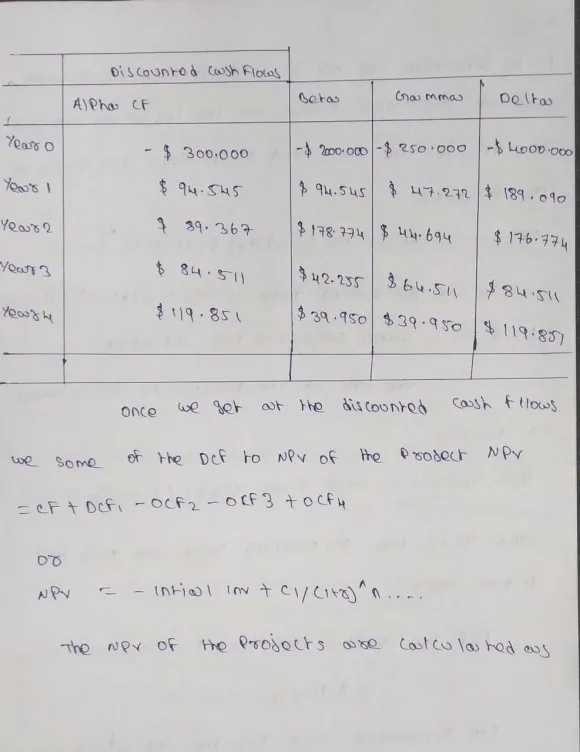 Discounted Cash Flows
Alpha CF Beta Gamma Delta
Year 0 - $ 300.000 -$ 200.000 -$ 250.000 -$ 4000.000
Year 1 $ 94.545 $ 94.545 $ 47.272 $ 189.090
Year 2 $ 89.367 $ 178.774 $ 44.694 $ 176.774
Year 3 $ 84.511 $ 42.255 $ 64.511 $ 84.511
Year 4 $ 119.851 $ 39.950 $ 39.950 $ 119.851
once we get at the discounted cash flows
we some of the Dcf to NPV of the Project NPV
= CF + DCF1 - OCF2 - OCF3 + OCF4
or
NPV = - Intial inv + C1/(1+r)^n ....
The NPV of the Projects are calculated as